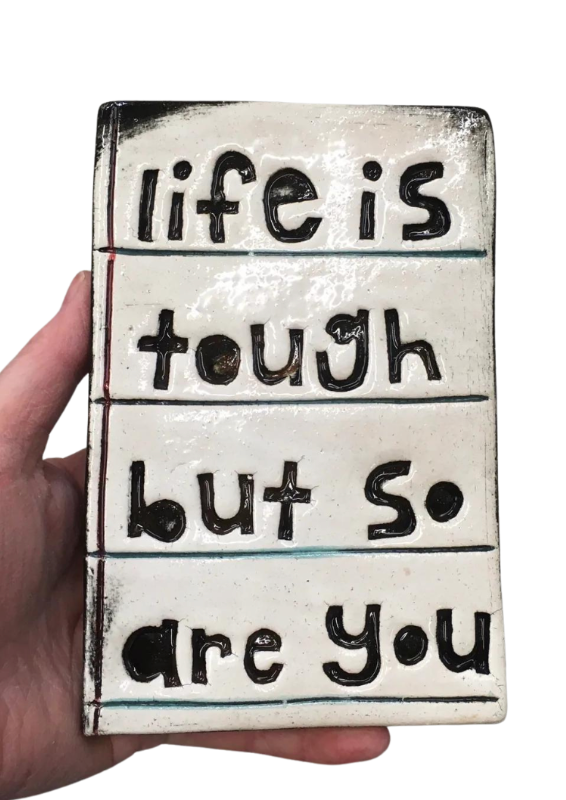 life is
tough
but so
are you